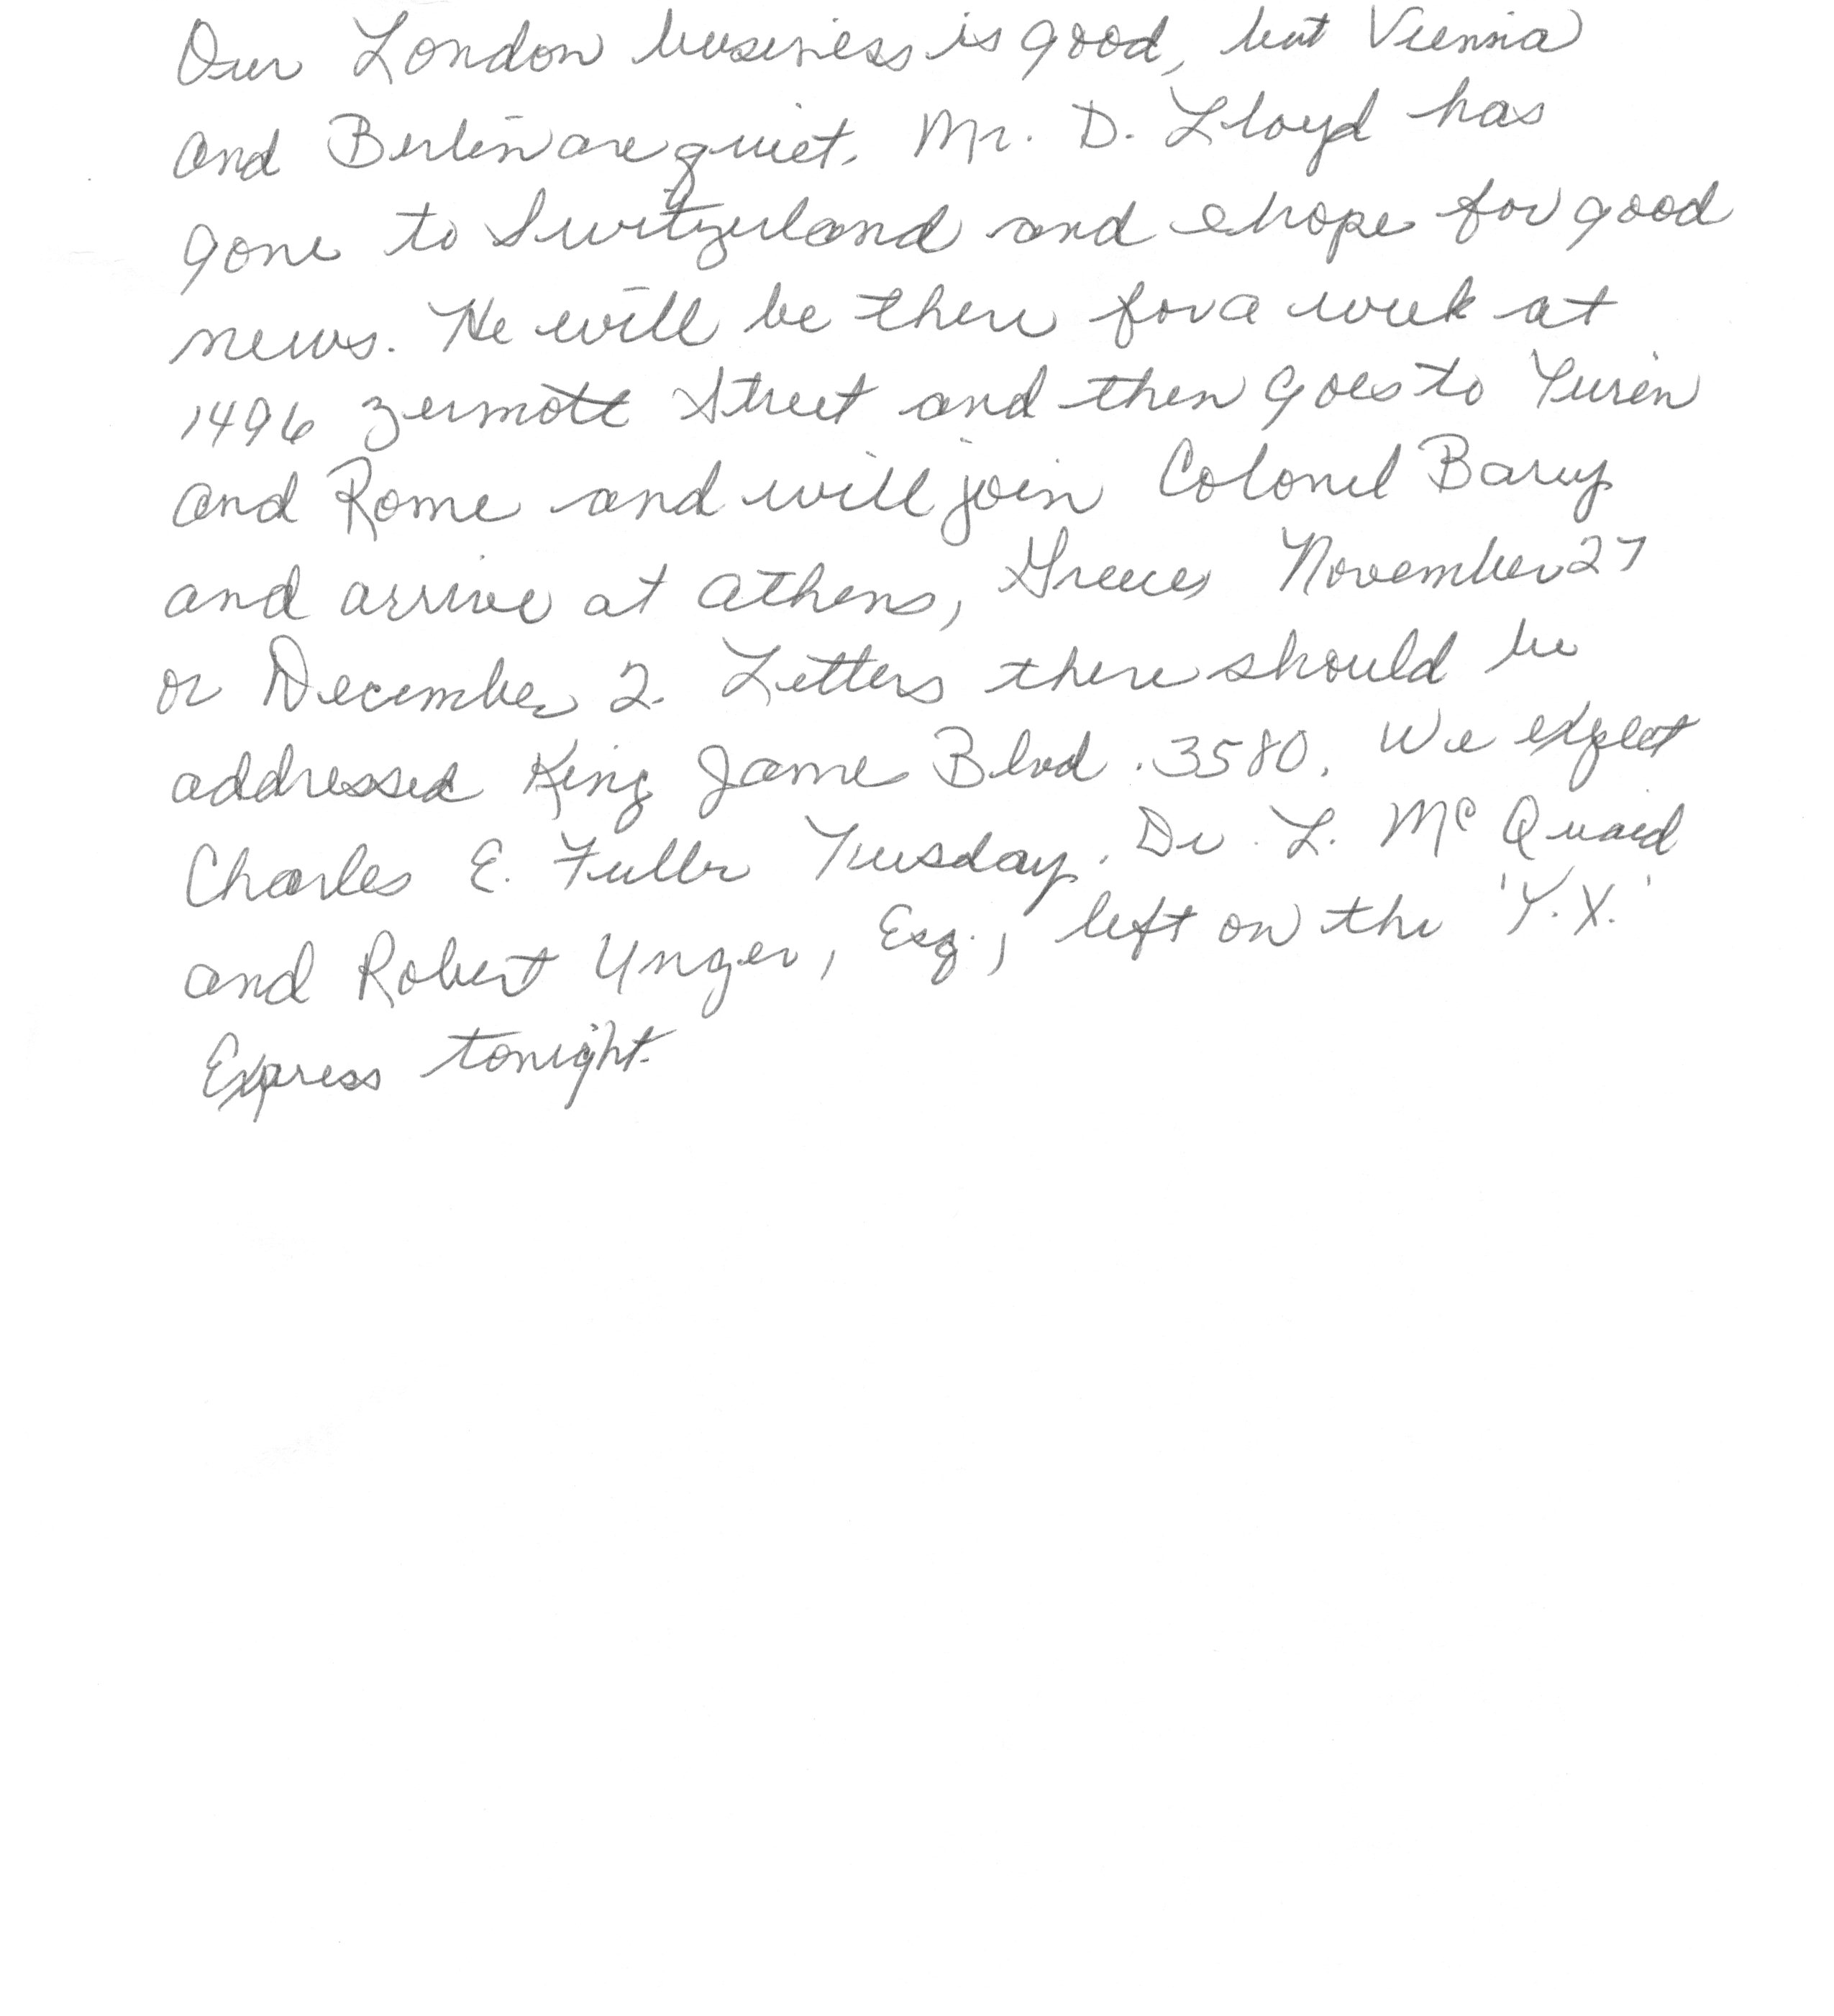 Our London business is good, but Vienna
and Berlin are quiet. Mr. D. Lloyd has
gone to Switzerland and I hope for good
news. He will be there for a week at
1496 Zermott Street and then goes to Turin
and Rome and will join Colonel Barry
and arrive at Athens, Greece, November 27
or December 2. Letters there should be
addressed King James Blvd. 3580. We expect
Charles E. Fuller Tuesday. Dr. L. McQuaid
and Robert Unger, Esq., left on the 'Y.X.'
Express tonight.